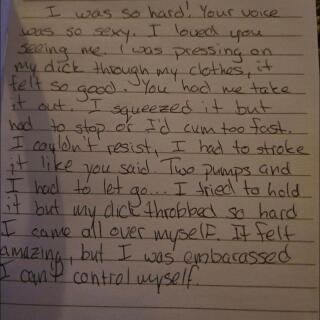 I was so hard! Your voice
was so sexy. I loved you
seeing me. I was pressing on
my dick through my clothes, it
felt so good. You had me take
it out. I squeezed it but
had to stop or I'd cum too fast.
I couldn't resist, I had to stroke
it like you said. Two pumps and
I had to let go... I tried to hold
it but my dick throbbed so hard
I came all over myself. It felt
amazing, but I was embarassed
I can't control myself.